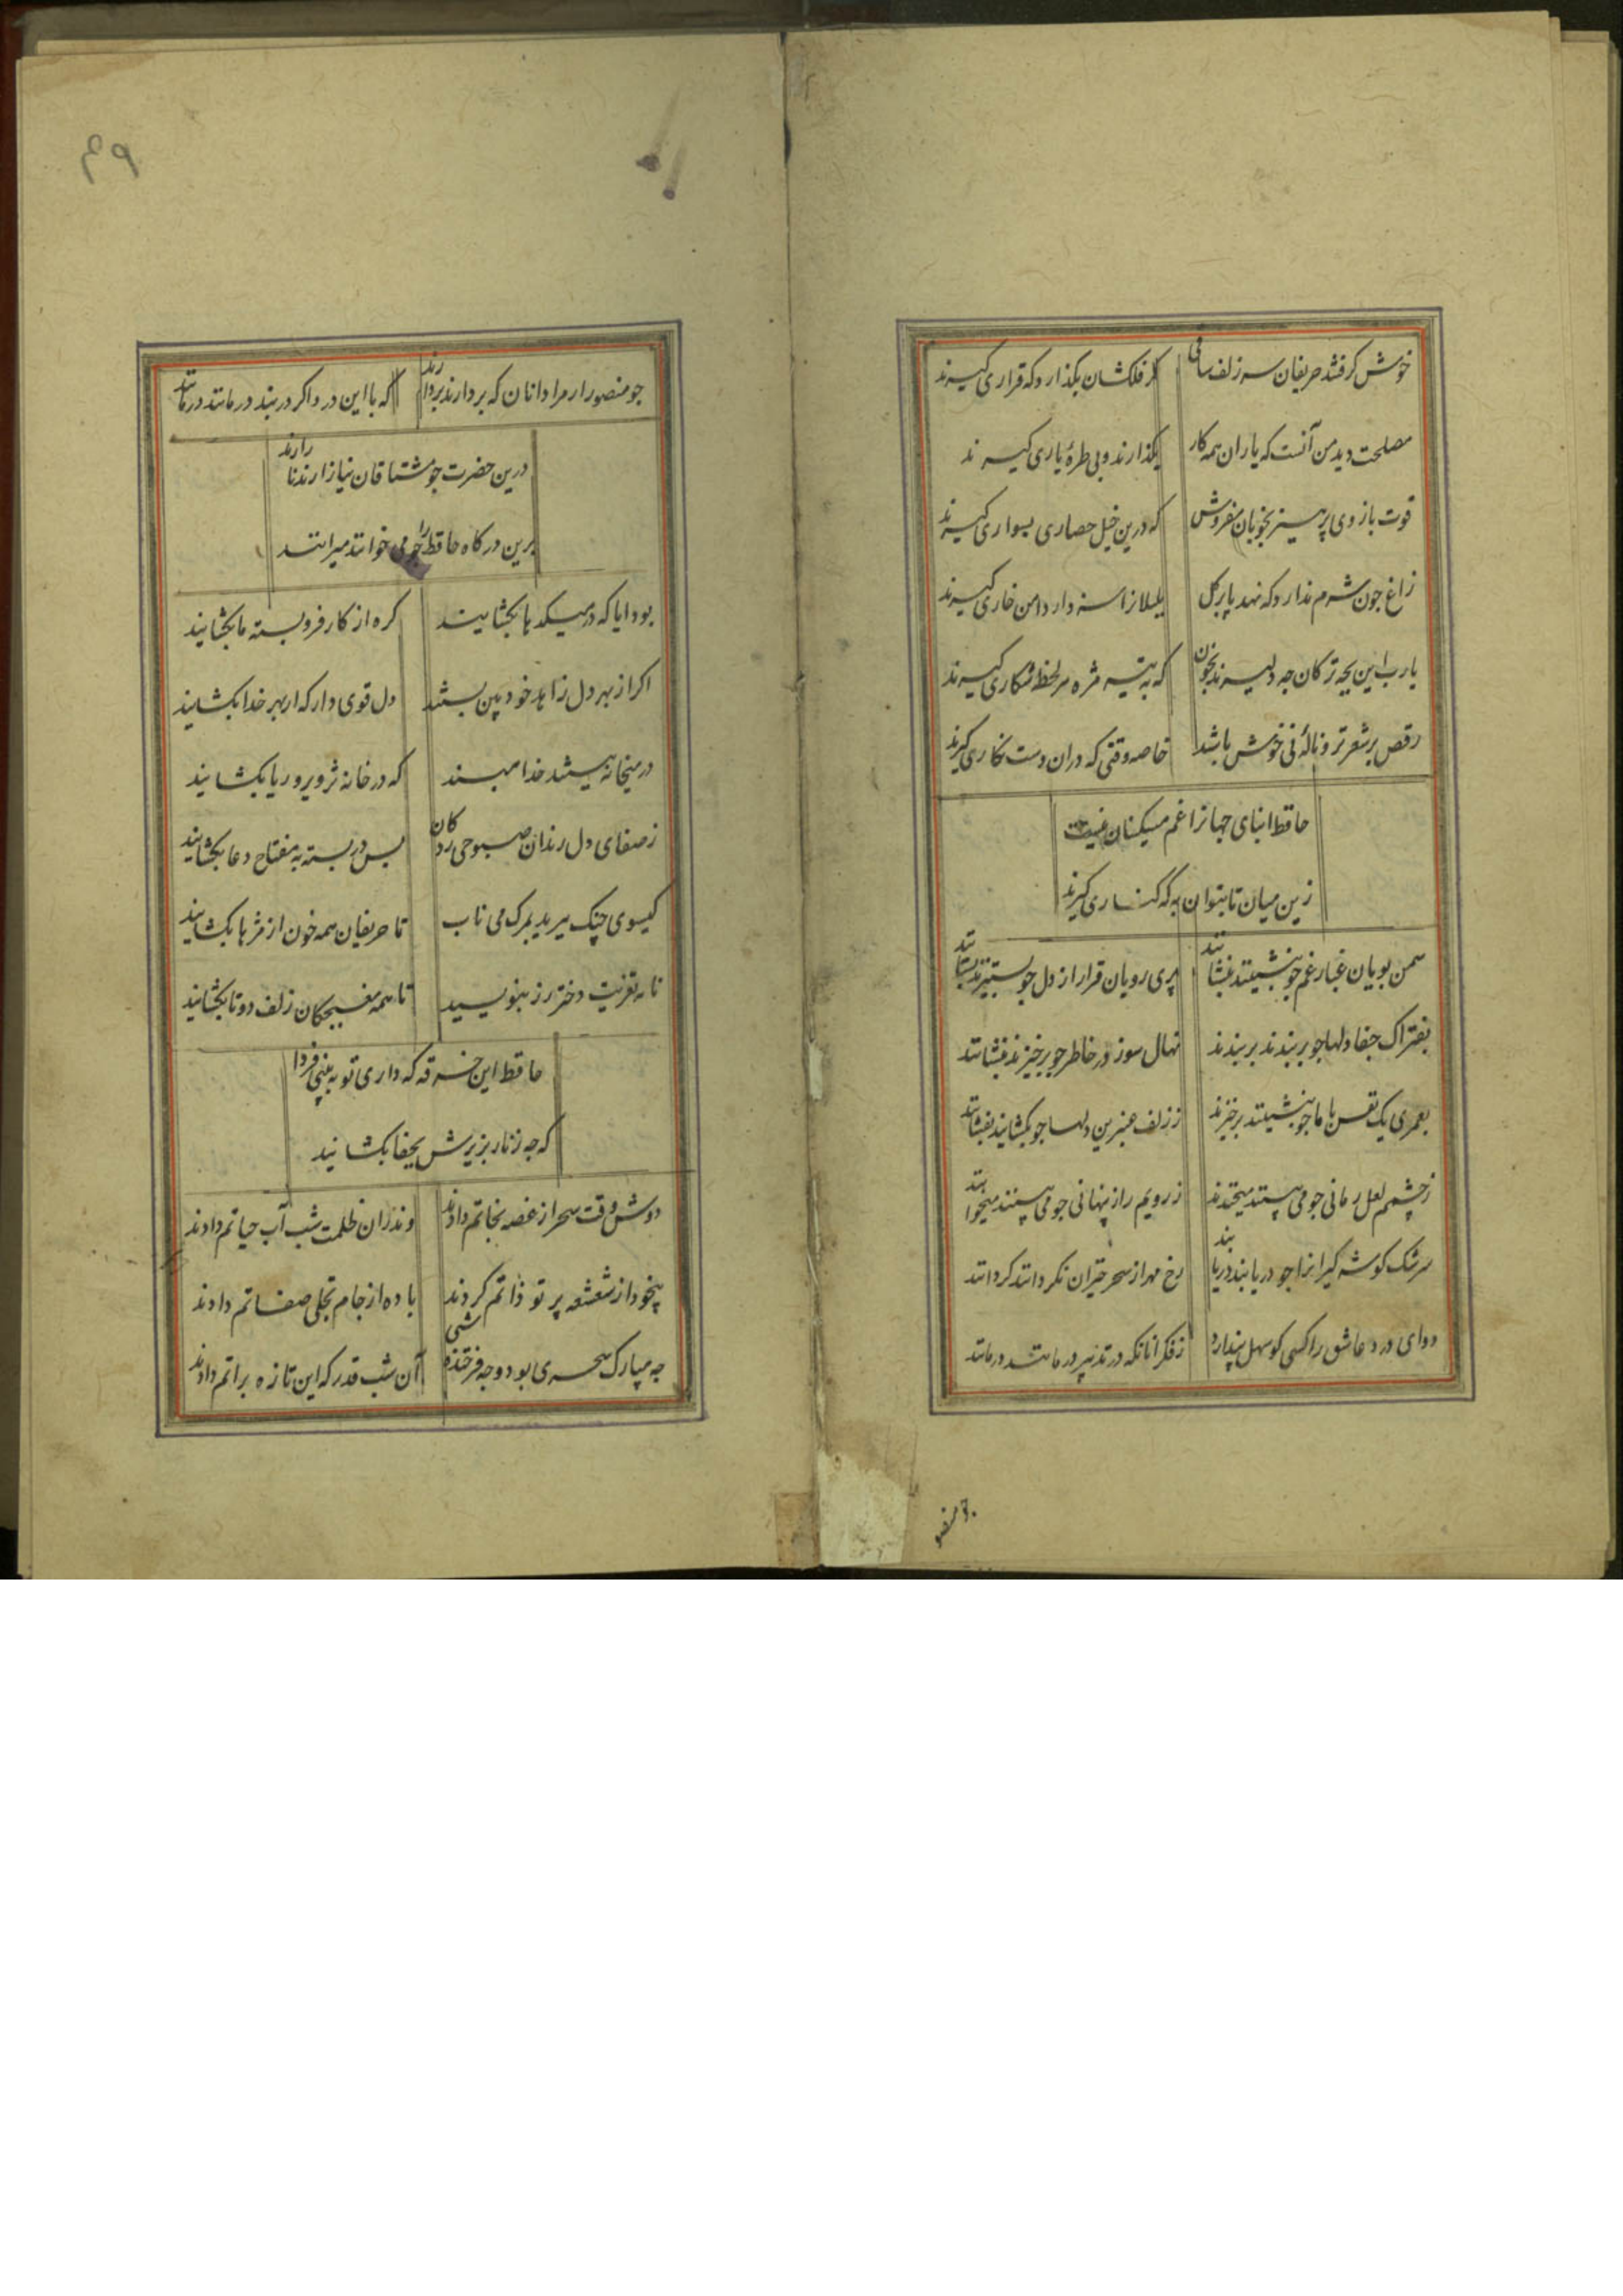 خوش کرفتند حریفان سر زلف ساقی کر فلکشان بکذارد که قراری کیرند
مصلحت دید من آنست که یاران همه کار بکذارند و پی طرهٔ یاری کیرند
قوت بازوی پرهیز بخوبان مفروش که درین خیل حصاری بسواری کیرند
زاغ چون شرم ندارد که نهد پا بر کل بلبلانرا سزد ار دامن خاری کیرند
یارب این بچه ترکان چه دلیرند بخون که به تیر مژه هر لحظه شکاری کیرند
رقص بر شعر تر و نالهٔ نی خوش باشد خاصه وقتی که دران دست نکاری کیرند
حافظ ابنای جهانرا غم مسکینان نیست
زین میان تا بتوان به که کناری کیرند
سمن بویان غبار غم چو بنشینند بنشانند پری رویان قرار از دل چو بستیزند بستانند
بفتراک جفا دلها چو بربندند بربندند نهال سوز در خاطر چو برخیزند بنشانند
بعمری یک نفس با ما چو بنشینند برخیزند ز زلف عنبرین دلها چو بکشایند بفشانند
ز چشمم لعل رمانی چو می بینند میخندند ز رویم راز پنهانی چو می بینند میخوانند
سرشک کوشه کیرانرا چو دریابند دریابند رخ مهر از سحر خیزان نکردانند کردانند
دوای درد عاشق را کسی کو سهل پندارد ز فکر انانکه در تدبیر درمانند درمانند
چو منصور
۶۹
چو منصور ار مرادانان که بردارند بردارند که با این درد اکر دربند درمانند درمانند
درین حضرت چو مشتاقان نیاز ارند ناز ارند
برین درکاه حافظ را چو می خوانند میرانند
بود ایا که در میکدها بکشایند کره از کار فروبسته ما بکشایند
اکر از بهر دل زاهد خودبین بستند دل قوی دار که از بهر خدا بکشایند
در میخانه ببستند خدا مپسند که در خانه تزویر و ریا بکشایند
ز صفای دل رندان صبوحی زدکان بس در بسته بمفتاح دعا بکشایند
کیسوی چنک ببرید بمرک می ناب تا حریفان همه خون از مژها بکشایند
نامه تعزیت دختر رز بنویسید تا همه مغبچکان زلف دوتا بکشایند
حافظ این خرقه که داری تو ببینی فردا
که چه زنار ز زیرش بجفا بکشایند
دوش وقت سحر از غصه نجاتم دادند وندران ظلمت شب آب حیاتم دادند
بیخود از شعشعه پرتو ذاتم کردند باده از جام تجلی صفاتم دادند
چه مبارک سحری بود و چه فرخنده شبی آن شب قدر که این تازه براتم دادند